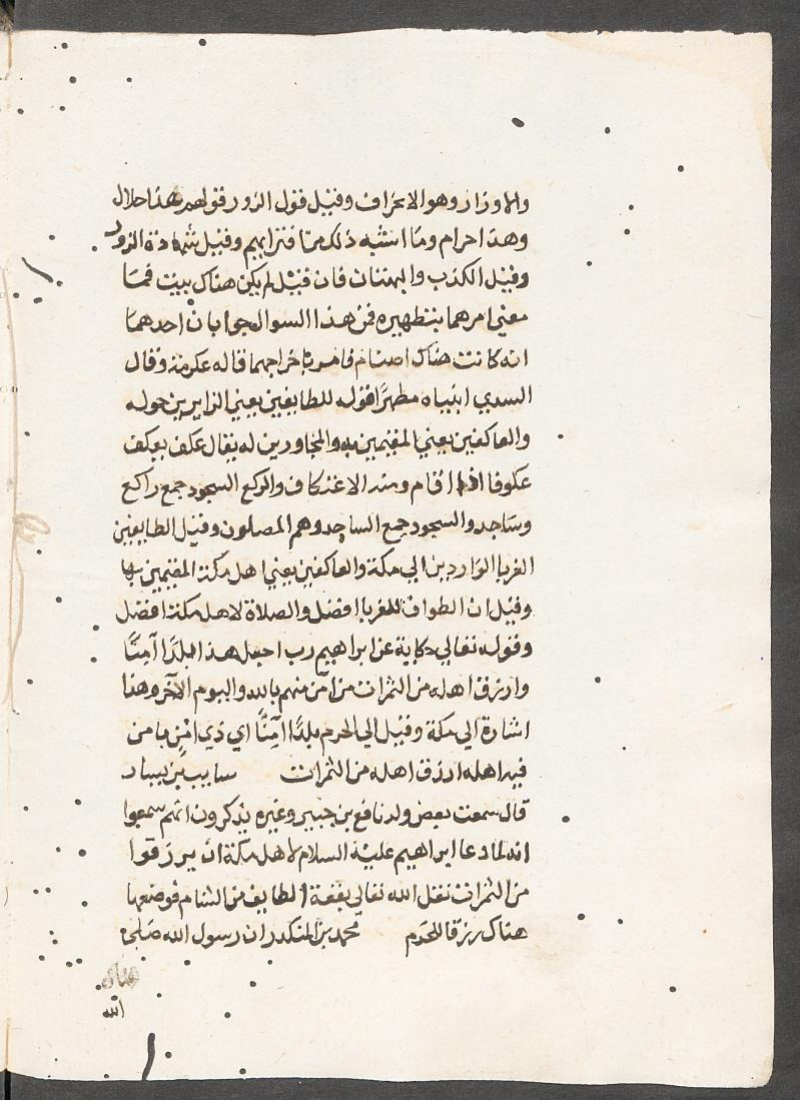 والاوزار وهو الانحراف وقيل قول الزور قولهم هذا حلال
وهذا حرام وما اشبه ذلك من افترايهم وقيل شهادة الزور
وقيل الكذب والبهتان فان قيل لم يكن هناك بيت فما
معني امرهما بتطهيره فمن هذا السوال جوابان احدهما
انه كانت هناك اصنام فامر باخراجهما قاله عكرمة وقال
السدي ابنياه مطهرًا قوله للطايفين يعني الزايرين حوله
والعاكفين يعني المقيمين به والمجاورين له يقال عكف يعكف
عكوفا اذا اقام ومنه الاعتكاف والركع السجود جمع راكع
وساجد والسجود جمع الساجد وهم المصلون وقيل الطايفين
الغربا الواردين الي مكة والعاكفين يعني اهل مكة المقيمين بها
وقيل ان الطواف للغربا افضل والصلاة لاهل مكة افضل
وقوله تعالي حكاية عن ابراهيم رب اجعل هذا البلدًا آمنًا
وارزق اهله من الثمرات من آمن منهم بالله واليوم الآخر وهذا
اشارة الي مكة وقيل الي الحرم بلدًا آمِنًا اي ذي امْنٍ يامن
فيه اهله ارزق اهله من الثمرات سايب بن يسار
قال سمعت بعض ولد نافع بن جبير وغيره يذكرون انهم سمعوا
انه لما دعا ابراهيم عليه السلام لاهل مكة ان يرزقوا
من الثمرات نقل الله تعالي بقعة الطايف من الشام فوضعها
هناك رزقا للحرم محمد بن المنكدر ان رسول الله صلي
الله